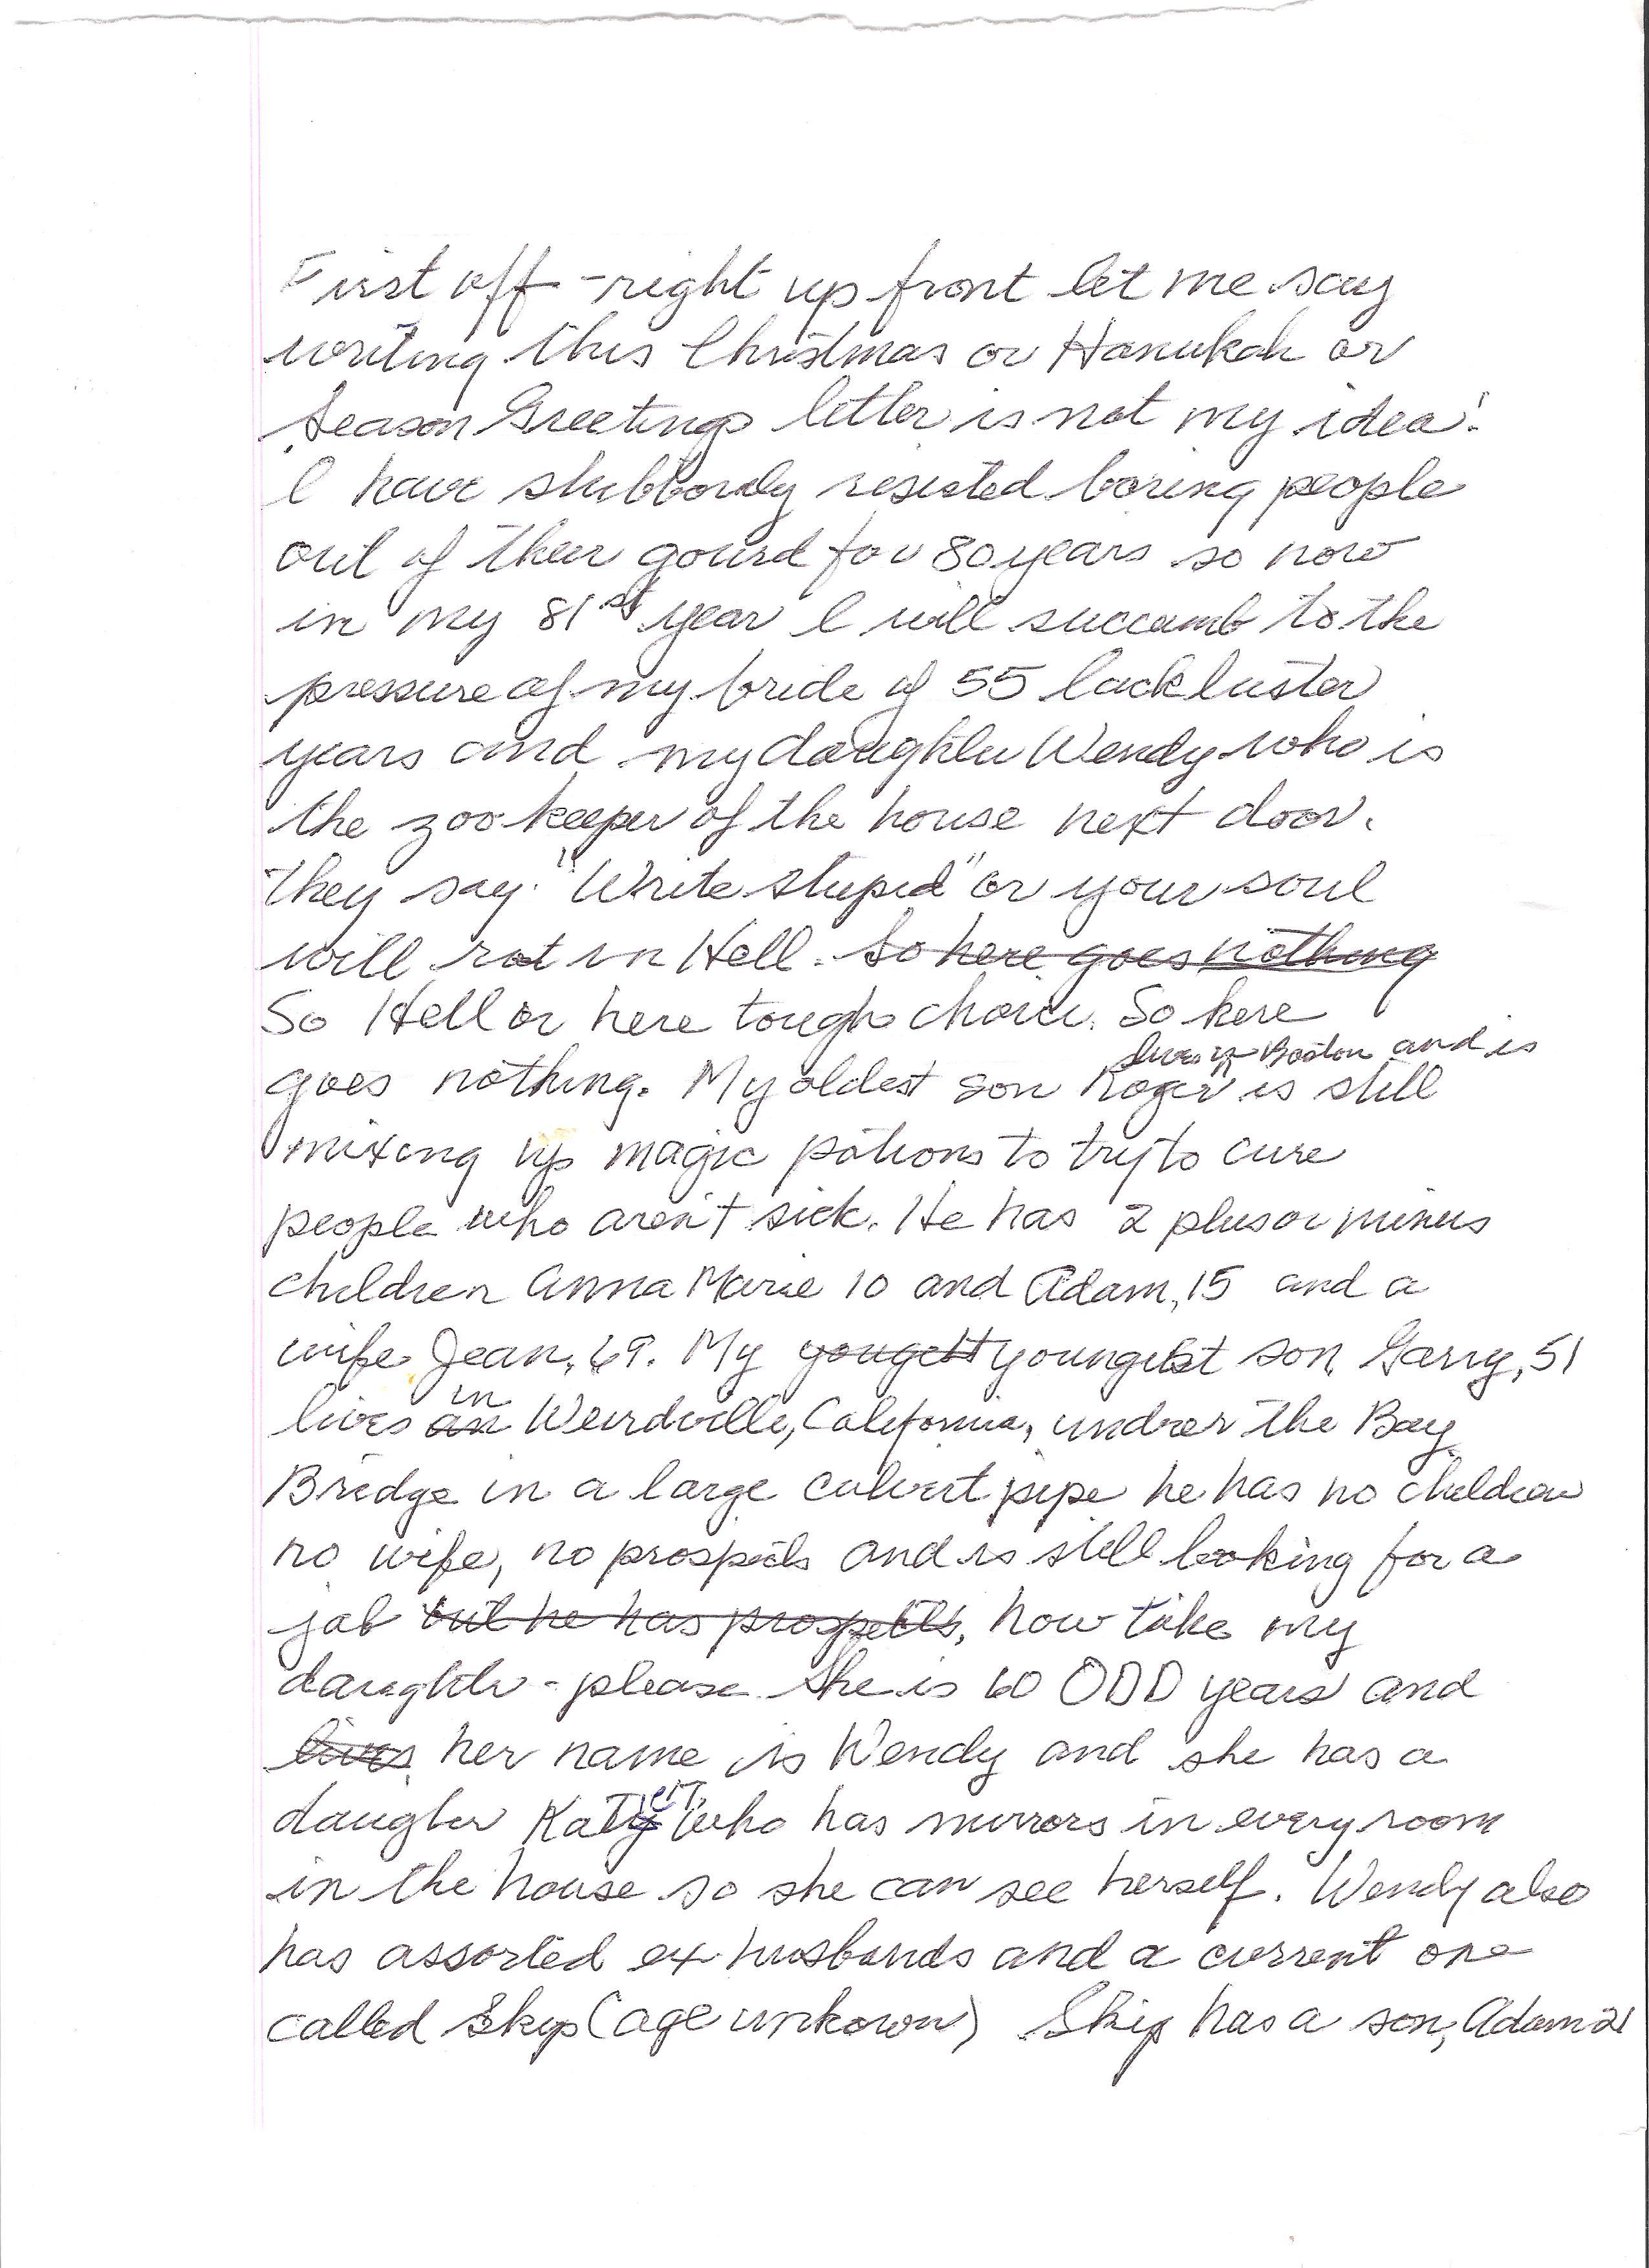 First off - right up front let me say
writing this Christmas or Hanukah or
Season Greetings letter is not my idea!
I have stubbornly resisted boring people
out of their gourd for 80 years so now
in my 81st year I will succumb to the
pressure of my bride of 55 lackluster
years and my daughter Wendy who is
the zoo keeper of the house next door.
They say "Write stupid" or your soul
will rot in Hell. So here goes nothing
So Hell or here tough choice. So here
lives in Boston and is
goes nothing. My oldest son Roger is still
mixing up magic potions to try to cure
people who aren't sick. He has 2 plus or minus
children Anna Marie 10 and Adam, 15 and a
wife Jean, 69. My yougest youngest son, Garry, 51
in
lives an Weirdville, California, undrer the Bay
Bridge in a large culvert pipe he has no children
no wife, no prospects and is still looking for a
job but he has prospects, now take my
daughter - please she is 60 ODD years and
lives her name is Wendy and she has a
daugter Katy who has mirrors in every room
in the house so she can see herself. Wendy also
has assorted ex husbands and a current one
called Skip (age unkown) Skip has a son, Adam 21